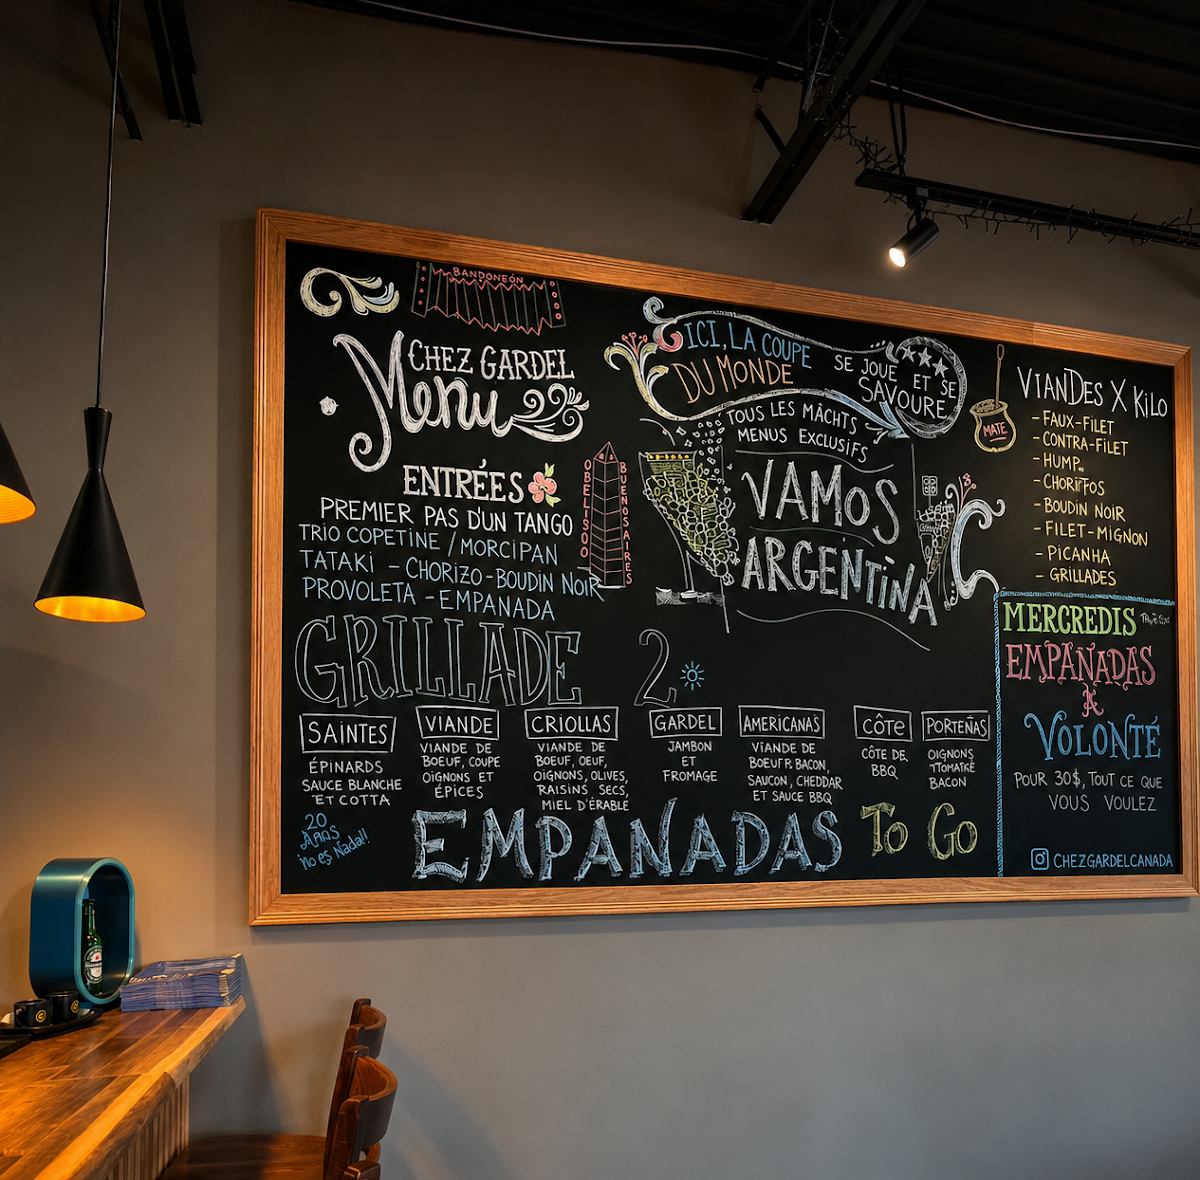 BANDONEÓN
CHEZ GARDEL
Menu
ENTRÉES
PREMIER PAS D'UN TANGO
TRIO COPETINE / MORCIPAN
TATAKI - CHORIZO - BOUDIN NOIR
PROVOLETA - EMPANADA
OBELISCO
BUENOS AIRES
ICI, LA COUPE
DU MONDE
SE JOUE ET SE
SAVOURE
TOUS LES MÂCHTS
MENUS EXCLUSIFS
VAMOS
ARGENTINA
MATE
VIANDES X KILO
- FAUX-FILET
- CONTRA-FILET
- HUMP
- BOUDIN NOIR
- FILET-MIGNON
- PICANHA
- GRILLADES
GRILLADE
2
SAINTES
ÉPINARDS
SAUCE BLANCHE
ET COTTA
VIANDE
VIANDE DE
BOEUF, COUPE
OIGNONS ET
ÉPICES
CRIOLLAS
VIANDE DE
BOEUF, OEUF,
OIGNONS, OLIVES,
RAISINS SECS,
MIEL D'ÉRABLE
GARDEL
JAMBON
ET
FROMAGE
AMERICANAS
VIANDE DE
BOEUF BACON,
SAUCON, CHEDDAR
ET SAUCE BBQ
CÔTE
CÔTE DE
BBQ
PORTEÑAS
OIGNONS
TTOMATRE
BACON
20
AÑOS
no es Nada!!
EMPANADAS TO GO
MERCREDIS
EMPAÑADAS
À
VOLONTÉ
POUR 30$, TOUT CE QUE
VOUS VOULEZ
CHEZGARDELCANADA